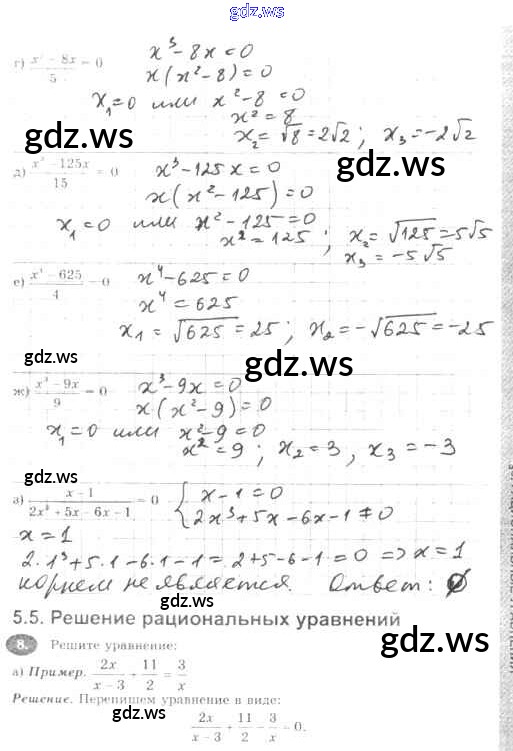 gdz.ws
г) x³ − 8x / 5 = 0 x³ − 8x = 0
x(x² − 8) = 0
x₁ = 0 или x² − 8 = 0
x² = 8
x₂ = √8 = 2√2 ; x₃ = −2√2
gdz.ws gdz.ws
д) x³ − 125x / 15 = 0 x³ − 125x = 0
gdz.ws
x(x² − 125) = 0
x₁ = 0 или x² − 125 = 0
x² = 125 ; x₂ = √125 = 5√5
x₃ = −5√5
gdz.ws
е) x⁴ − 625 / 4 = 0 x⁴ − 625 = 0
x⁴ = 625
x₁ = √625 = 25 ; x₂ = −√625 = −25
gdz.ws gdz.ws
ж) x³ − 9x / 9 = 0 x³ − 9x = 0
x(x² − 9) = 0
x₁ = 0 или x² − 9 = 0
x² = 9 ; x₂ = 3, x₃ = −3
gdz.ws
з) x − 1 / 2x³ + 5x − 6x − 1 = 0 { x − 1 = 0
2x³ + 5x − 6x − 1 ≠ 0
x = 1
2·1³ + 5·1 − 6·1 − 1 = 2 + 5 − 6 − 1 = 0 => x = 1
корнем не является. Ответ: ∅
5.5. Решение рациональных уравнений
8. Решите уравнение:
gdz.ws
а) Пример. 2x / x − 3 + 11 / 2 = 3 / x
Решение. Перепишем уравнение в виде:
gdz.ws
2x / x − 3 + 11 / 2 − 3 / x = 0.